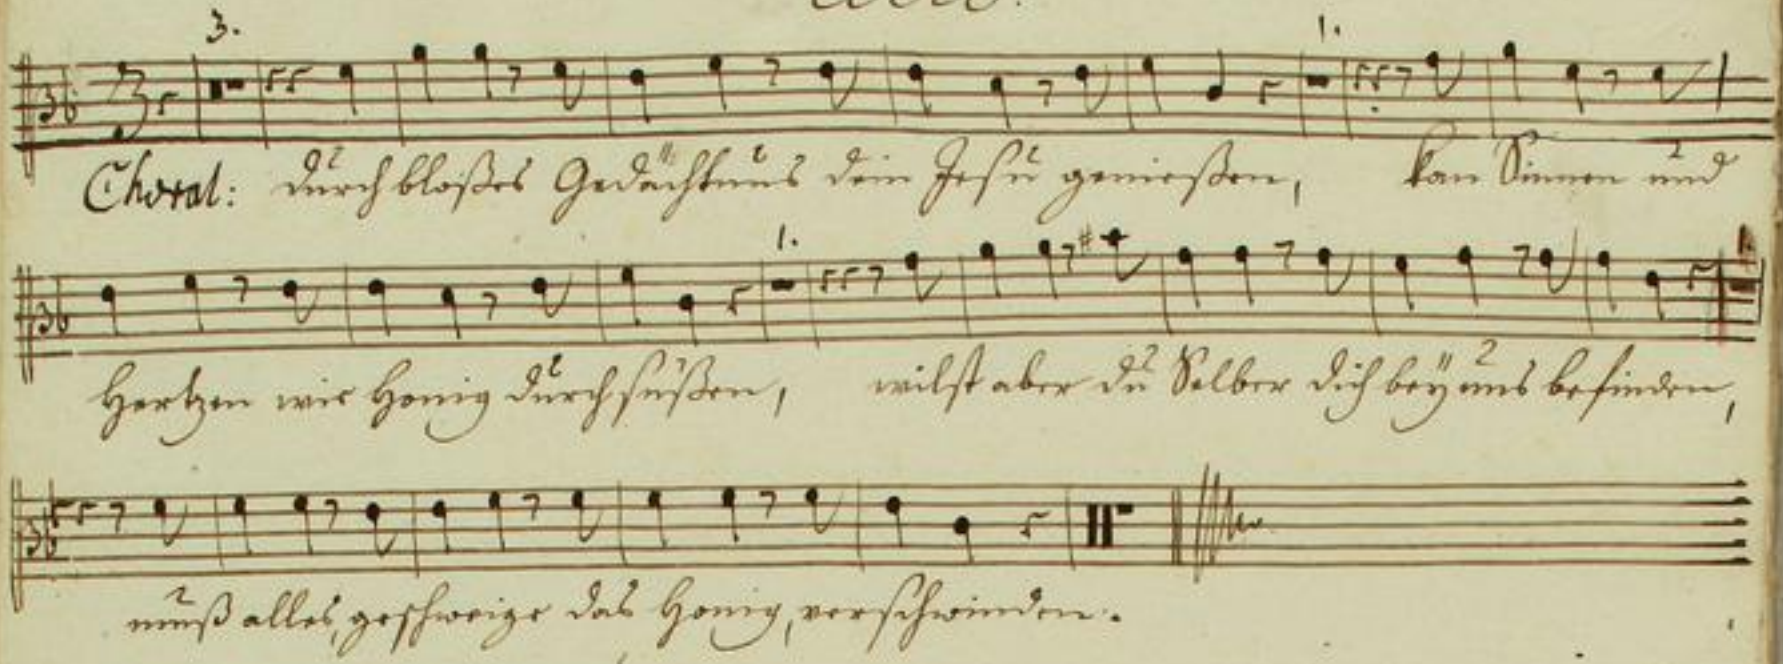 3. 1.
Choral: durch bloßes Gedächtnus dein Jesu genießen, kan Sinnen und
1.
Hertzen wie Honig durchsüßen, wilst aber du Selber dich beÿ uns befinden,
muß alles, geschweige das Honig, verschwinden.